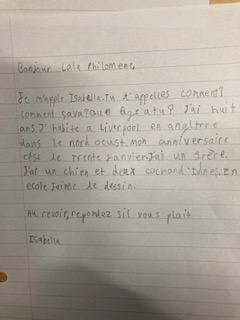 Bonjour Lala Philomene,
Je m'apple Isabella.Tu t'appelles comment?
comment sava? Quel âge a tu? J'ai huit
ans.J'habite a Liverpool en angltrre
dans le nord oeust.mon anniversaire
c'est le trente Janvier.J'ai un frère.
J'ai un chien et deux cochond'Indnes.En
ecole J'aime le dessin.
Au revoir, repondez sil vous plait
Isabella